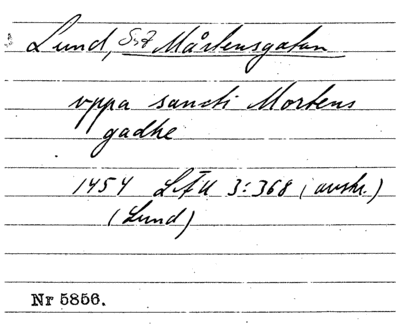 Lund, S:t Mårtensgatan
vppa sancti Mortens
gadhe
1454 LÄU 3:368 (avskr.)
(Lund)
Nr 5856.